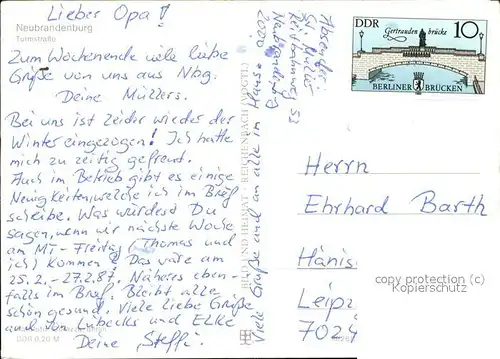 Neubrandenburg
Turmstraße
Lieber Opa!
Zum Wochenende viele liebe
Grüße von uns aus Nbg.
Deine Müllers.
Bei uns ist leider wieder der
Winter eingezogen! Ich hatte
mich zu zeitig gefreut.
Auch im Betrieb gibt es einige
Neuigkeiten, welche ich im Brief
schreibe. Was würdest Du
sagen, wenn wir nächste Woche
am Mi-Freitag (Thomas und
ich) kommen? Das wäre am
25.2.-27.2.87. Näheres eben-
falls im Brief. Bleibt alle
schön gesund. Viele liebe Grüße
auch von und Elke
Deine Steffi.
DDR 0,20 M
Viele Grüße und an alle im Hause
BILD UND HEIMAT · REICHENBACH (VOGTL)
Absender:
2000
DDR 10
Gertraudenbrücke
BERLINER BRÜCKEN
Herrn
Ehrhard Barth
Hänis
Leipz
7024
copyright (c)
Ansichtskartenversand.com